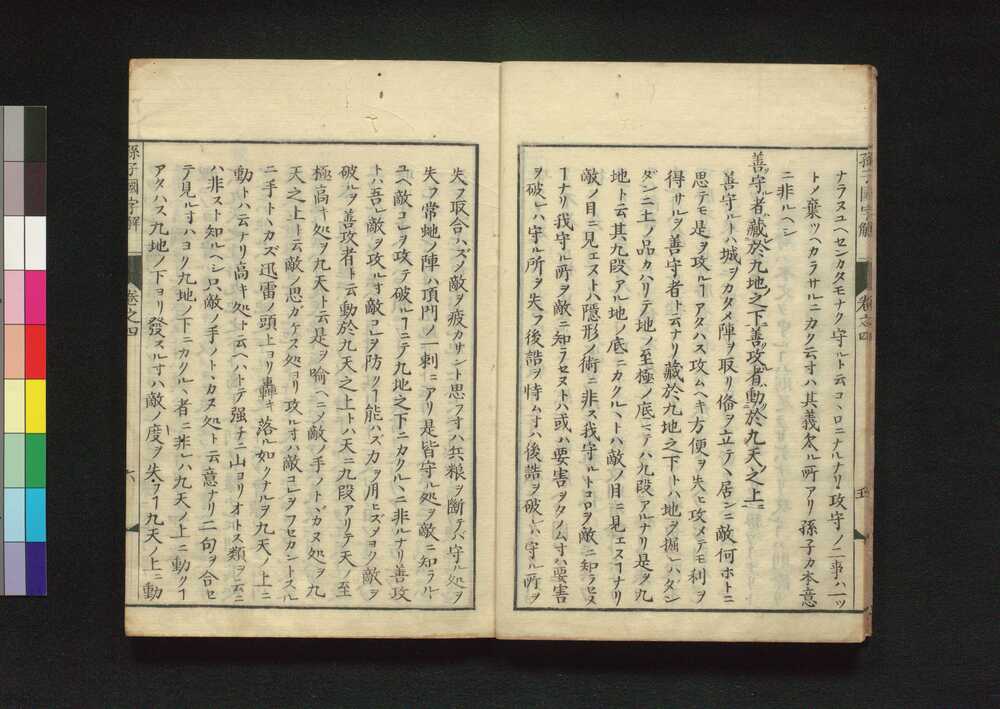 孫子國字解
卷之四
五
ナラスユヘセンカタモナク守ルト云コヽロニナルナリ攻守ノ二事ハ一ツ
トメ棄ツヘカラサルニカク云寸ハ其義欠ル所アリ孫子カ本意
ニ非ルヘシ
善守者藏於九地之下善攻者動於九天之上
善守ルトハ城ヲカタメ陣ヲ取リ備ヲ立テヽ居ンニ敵何ホトニ
思テモ是ヲ攻ルヿアタハス攻ムヘキ方便ヲ失ヒ攻メテモ利ヲ
得サルヲ善守者ト云ナリ藏於九地之下トハ地ヲ掘レハダン
ダンニ土ノ品カハリテ地ノ至極ノ底ニテハ九段アルナリ是ヲ九
地ト云其九段アル地ノ底ニカクルヽトハ敵ノ目ニ見エスヿナリ
敵ノ目ニ見エストハ隱形ノ術ニ非ス我守ルトコロヲ敵ニ知ラセヌ
ヿナリ我守ル所ヲ敵ニ知ラセヌトハ或ハ要害ヲタノム寸ハ要害
ヲ破レハ守ル所ヲ失フ後詰ヲ恃ム寸ハ後詰ヲ破レハ守ル所ヲ
失フ取合ハズノ敵ヲ疲カサント思フ寸ハ兵粮ヲ斷テバ守ル処ヲ
失フ常地ノ陣ハ頂門ノ一刺ニアリ是皆守ル処ヲ敵ニ知ラル
ユヘ敵コレヲ攻テ破ルヿニテ九地之下ニカクルヽニ非ルナリ善攻
トハ吾レ敵ヲ攻ル寸敵コレヲ防クヿ能ハズカヲ用ヒズヨク敵ヲ
破ルヲ善攻者ト云動於九天之上トハ天ニ九段アリテ天ノ至
極高キ処ヲ九天ト云是ヲ喩ヘニメ敵ノ手ノトヾカヌ処ヲ九
天之上ト云敵ノ思ガケヌ処ヨリ攻ル寸ハ敵コレヲフセカントスルニ
ニ手トヽカズ迅雷ノ頭上ヨリ轟キ落ル如クナルヲ九天ノ上ニ
動トハ云ナリ高キ処ト云ヘハトテ强チニ山ヨリオトス類ヲ云ニ
ハ非スト知ルヘシ只敵ノ手ノトヽカヌ処ト云意ナリ二句ヲ合セ
テ見ル寸ハヨク九地ノ下ニカクルヽ者ニ非レハ九天ノ上ニ動クヿ
アタハス九地ノ下ヨリ發スル寸ハ敵ノ度ヲ失フヿ九天ノ上ニ動
孫子國字解
卷之四
六